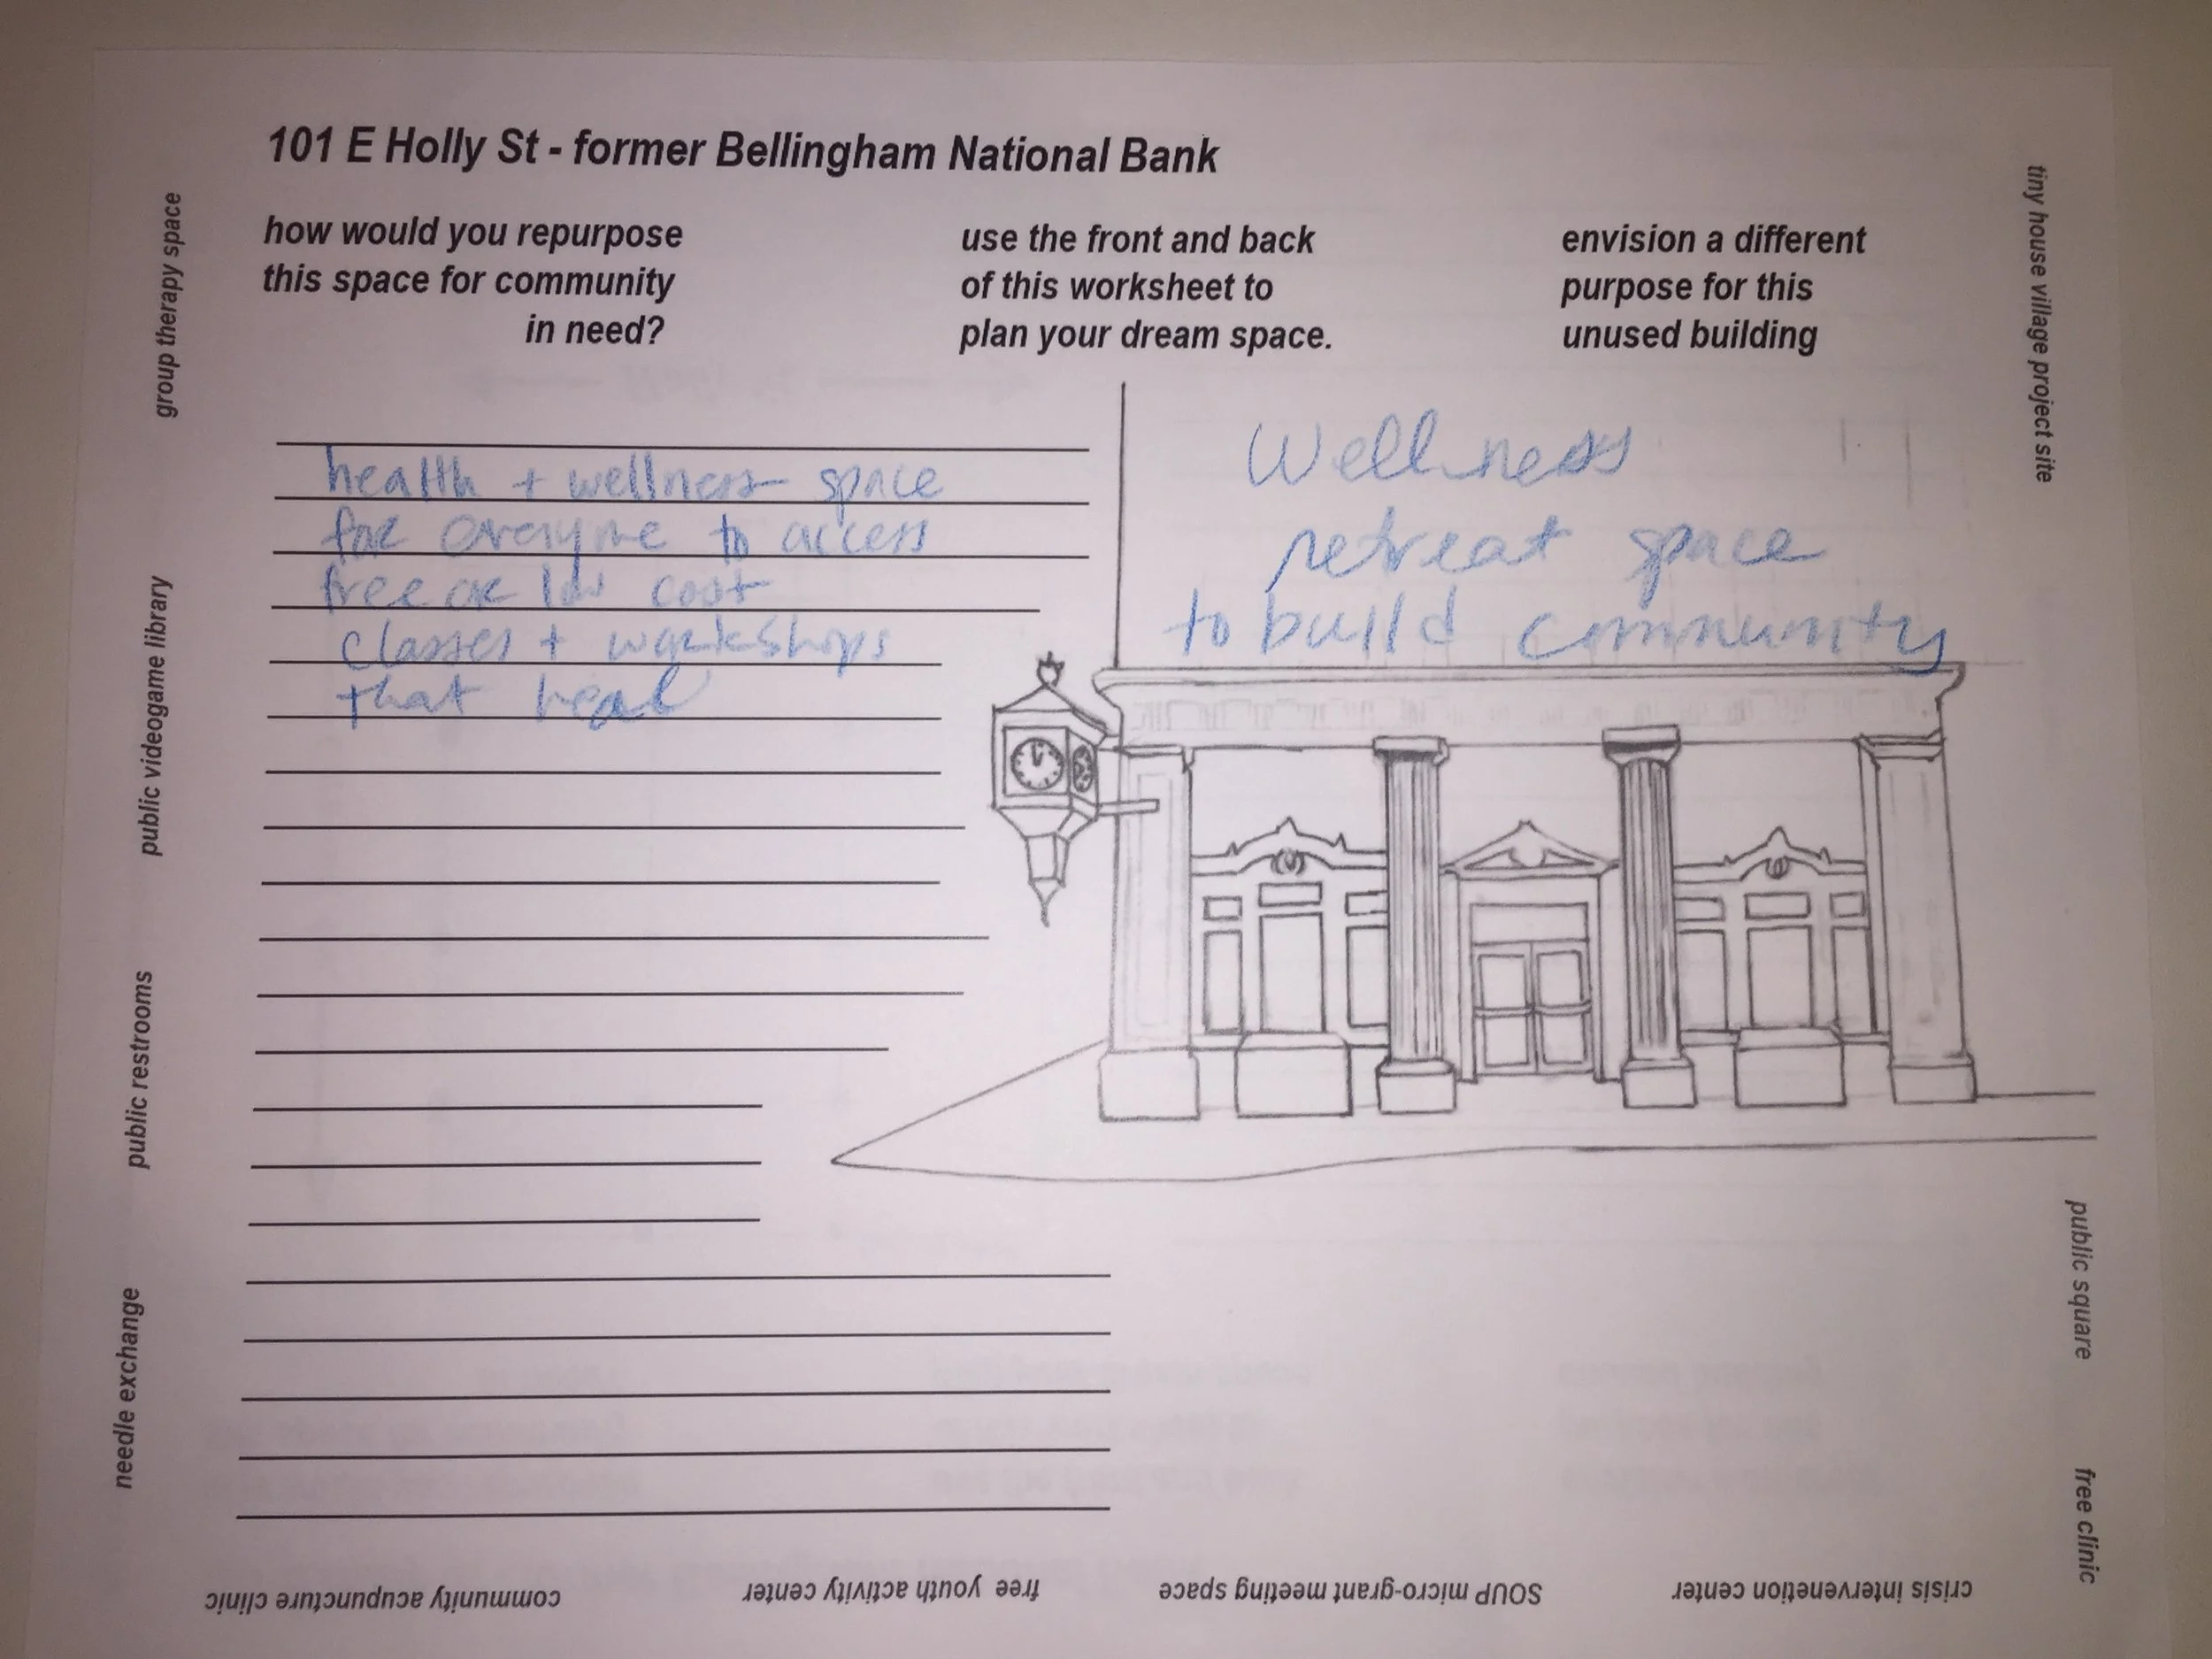 101 E Holly St - former Bellingham National Bank
how would you repurpose
this space for community
in need?
use the front and back
of this worksheet to
plan your dream space.
envision a different
purpose for this
unused building
health + wellness space
for everyone to access
free or low cost
classes + workshops
that heal
Wellness
retreat space
to build community
group therapy space
public videogame library
public restrooms
needle exchange
tiny house village project site
public square
free clinic
crisis intervenetion center
SOUP micro-grant meeting space
free youth activity center
community acupuncture clinic